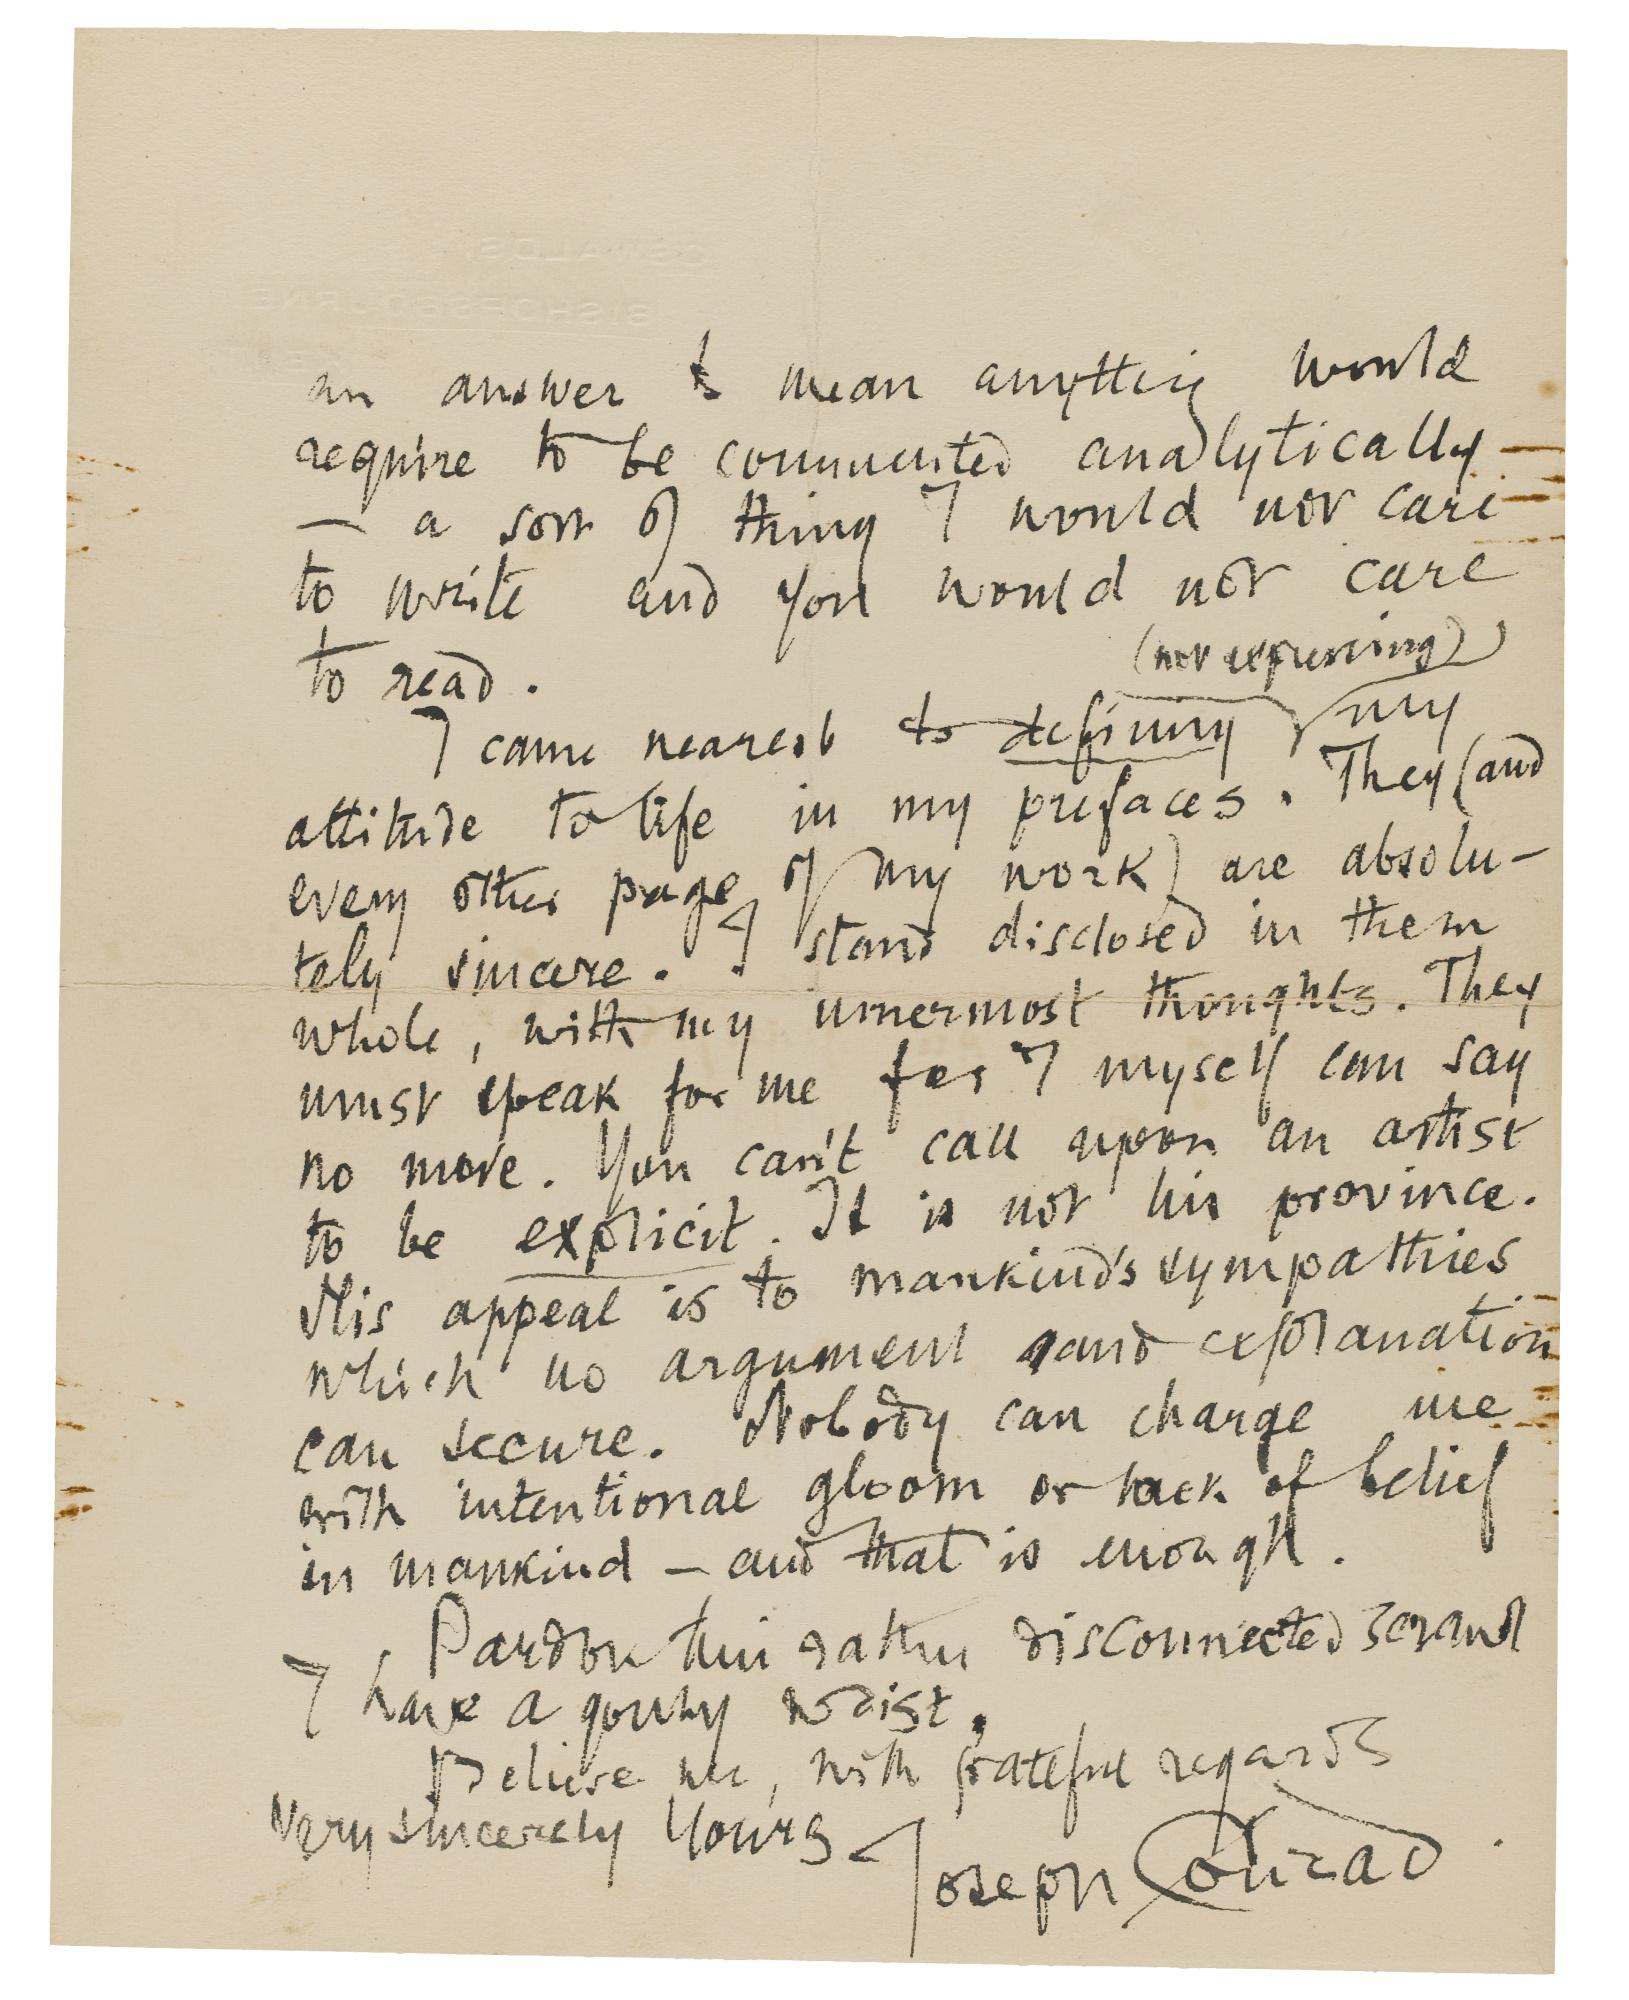 OSWALDS,
BISHOPSBOURNE,
an answer to mean anything would
require to be commented analytically
— a sort of thing I would not care
to write and you would not care
to read.
(not expressing)
I came nearest to defining my
attitude to life in my prefaces. They (and
every other page of my work) are absolu-
tely sincere. I stand disclosed in them
whole, with my innermost thoughts. They
must speak for me for I myself can say
no more. You can't call upon an artist
to be explicit. It is not his province.
His appeal is to mankind's sympathies
which no argument and explanation
can secure. Nobody can charge me
with intentional gloom or lack of belief
in mankind – and that is enough.
Pardon this rather disconnected scrawl
I have a gouty wrist.
Believe me, with grateful regards
very sincerely Yours
Joseph Conrad